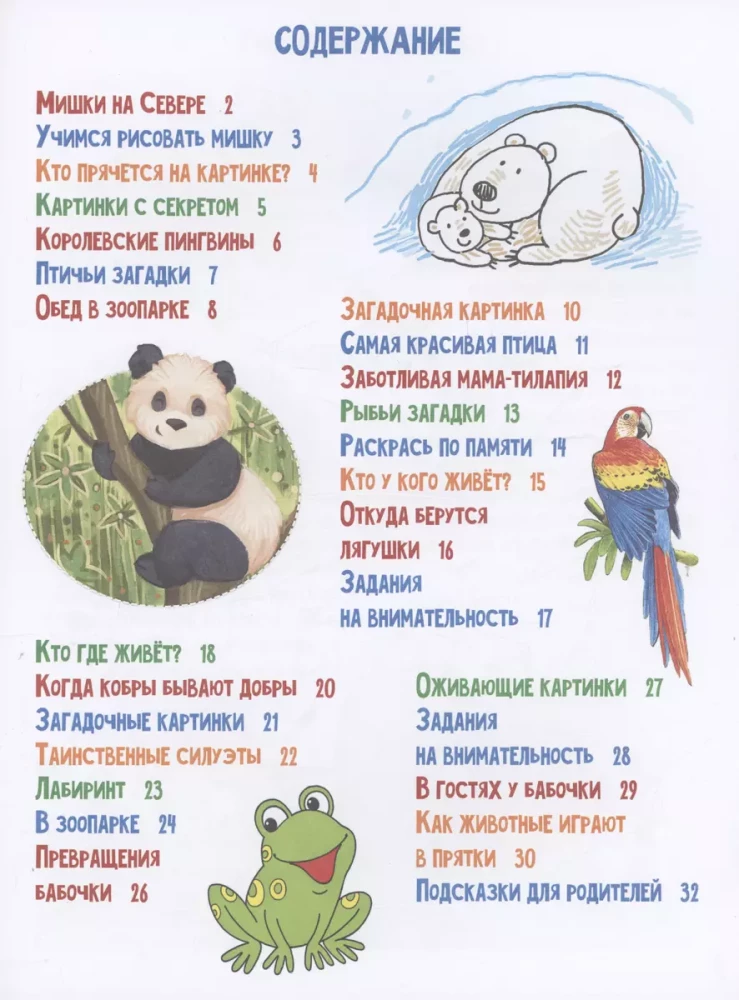 СОДЕРЖАНИЕ
Мишки на Севере 2
Учимся рисовать мишку 3
Кто прячется на картинке? 4
Картинки с секретом 5
Королевские пингвины 6
Птичьи загадки 7
Обед в зоопарке 8
Загадочная картинка 10
Самая красивая птица 11
Заботливая мама-тилапия 12
Рыбьи загадки 13
Раскрась по памяти 14
Кто у кого живёт? 15
Откуда берутся
лягушки 16
Задания
на внимательность 17
Кто где живёт? 18
Когда кобры бывают добры 20
Загадочные картинки 21
Таинственные силуэты 22
Лабиринт 23
В зоопарке 24
Превращения
бабочки 26
Оживающие картинки 27
Задания
на внимательность 28
В гостях у бабочки 29
Как животные играют
в прятки 30
Подсказки для родителей 32